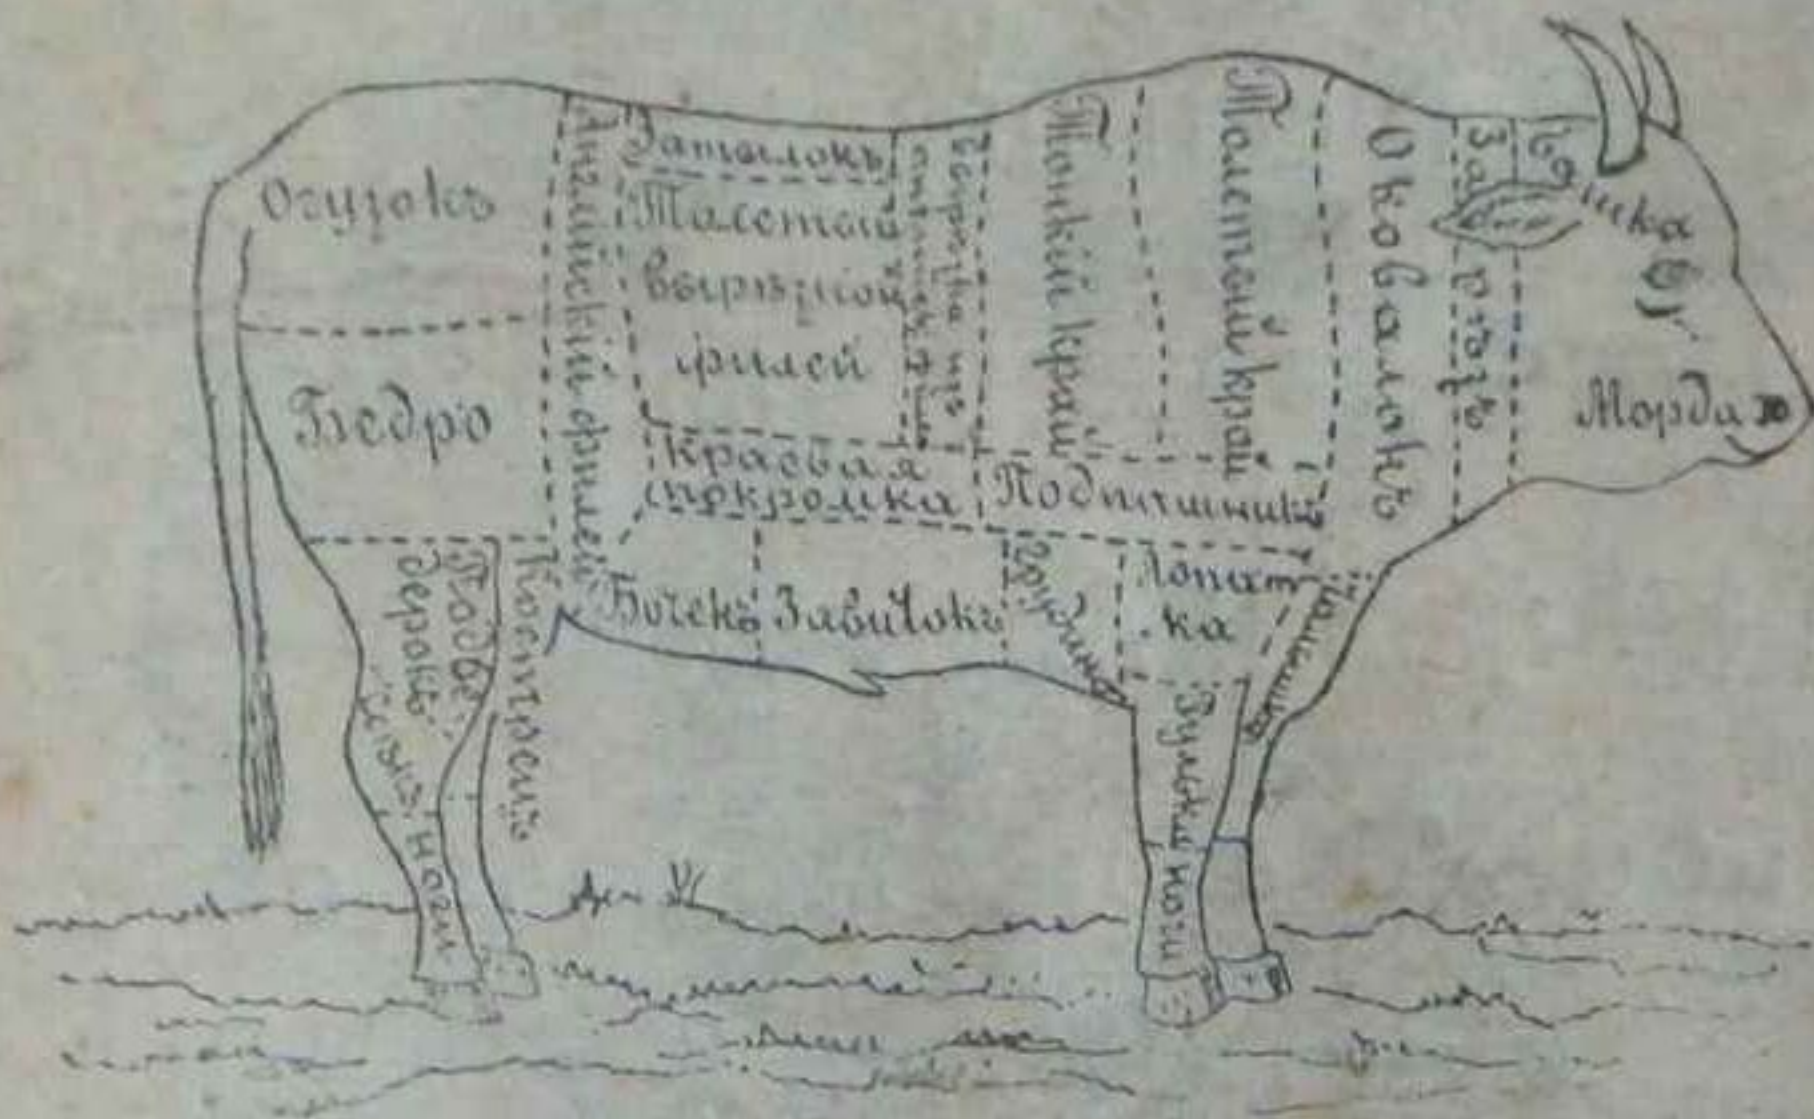 Огузокъ
Бедро
Англійскій филей
Затылокъ
Толстый
вырѣзной
филей
Тонкій край
Толстый край
Оковалокъ
Зарѣзъ
Башка
Морда
Красная
покромка
Подпашникъ
Бочекъ
Завитокъ
Грудина
Лопат
ка
Подбе-
дерокъ
ноги
Кострецъ
ноги